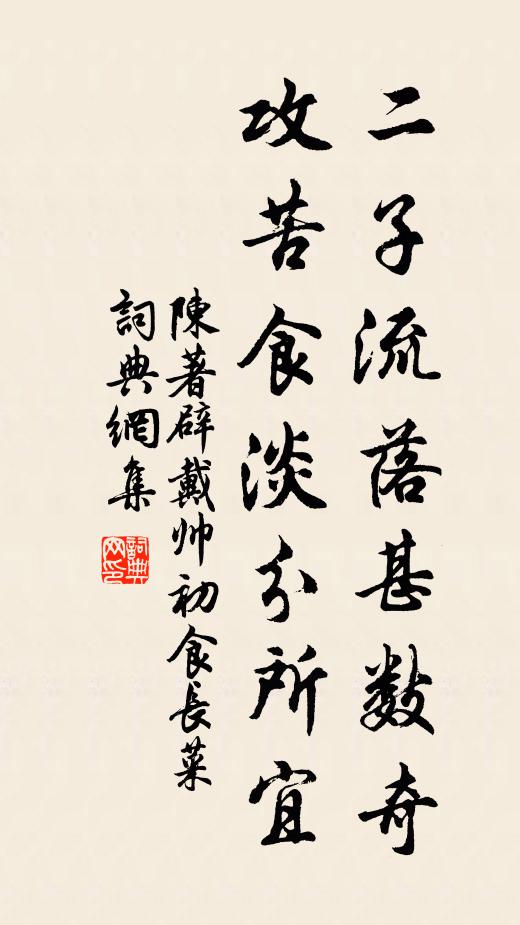 二子流落甚数奇
攻苦食淡分所宜
陳著辟戴帅初食長菜
詞典網集
詞典
网印